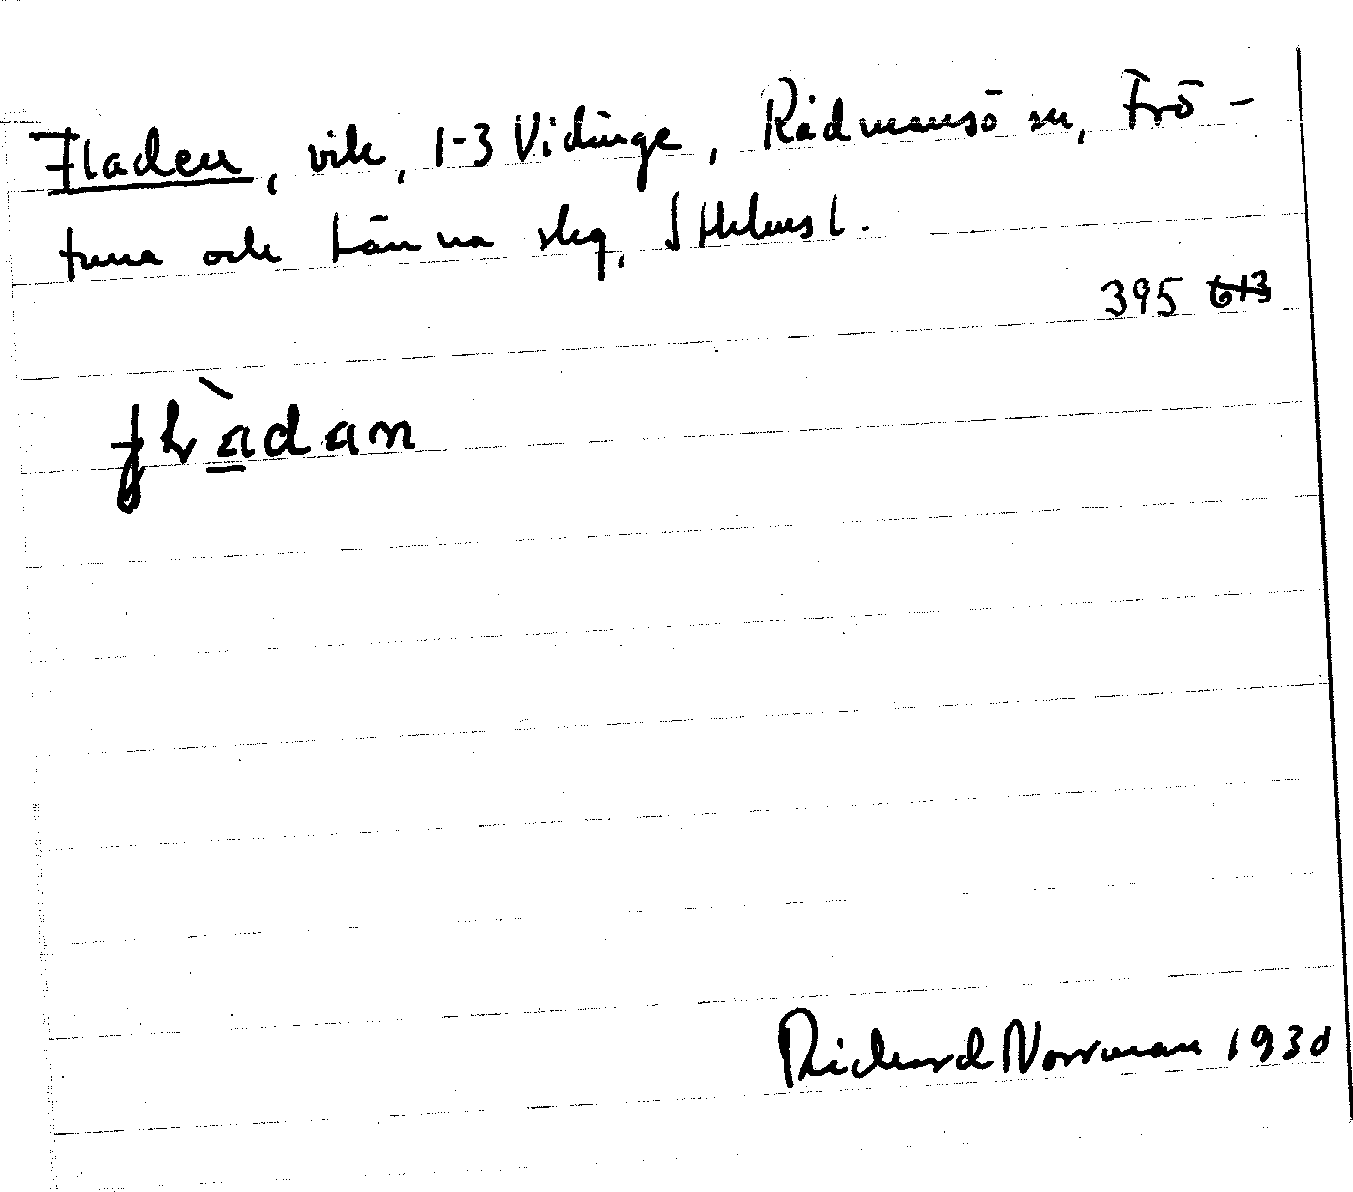 Fladen, vik, 1-3 Vidinge, Rådmansö sn, Frö-
tuna och Länna skg, Sthlms l.
395 613
flàdan
Richard Norrman 1930